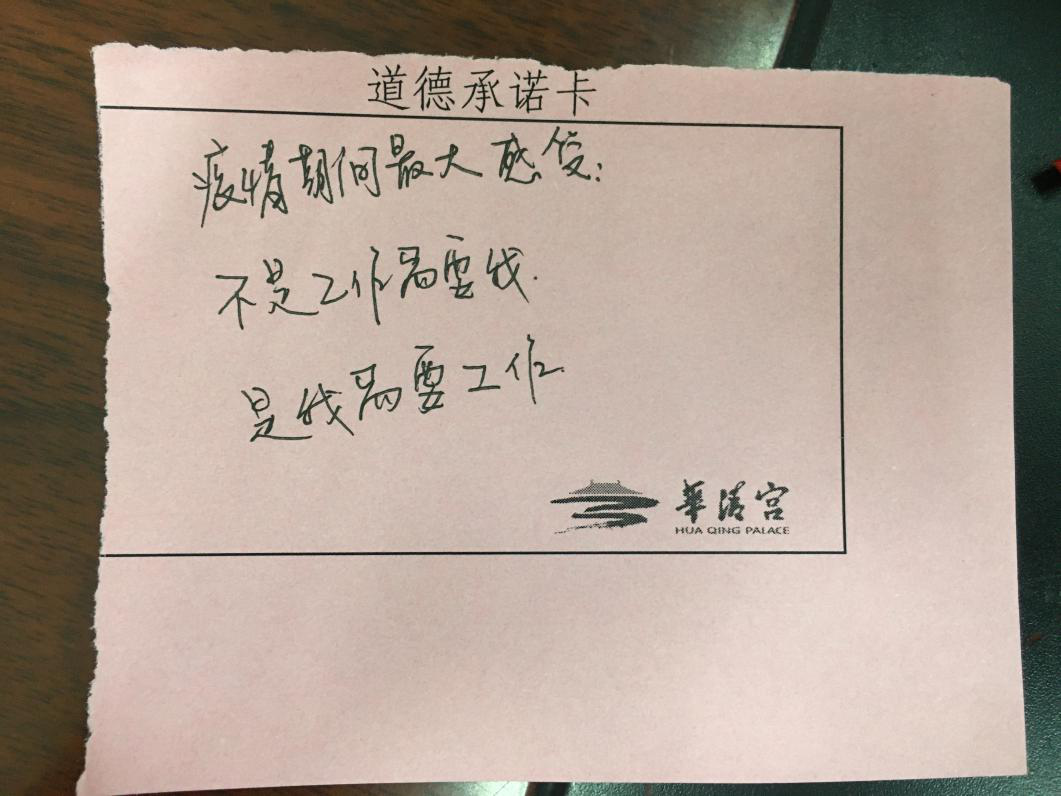 道德承诺卡
疫情期间最大感受：
不是工作需要我.
是我需要工作.
華清宫
HUA QING PALACE